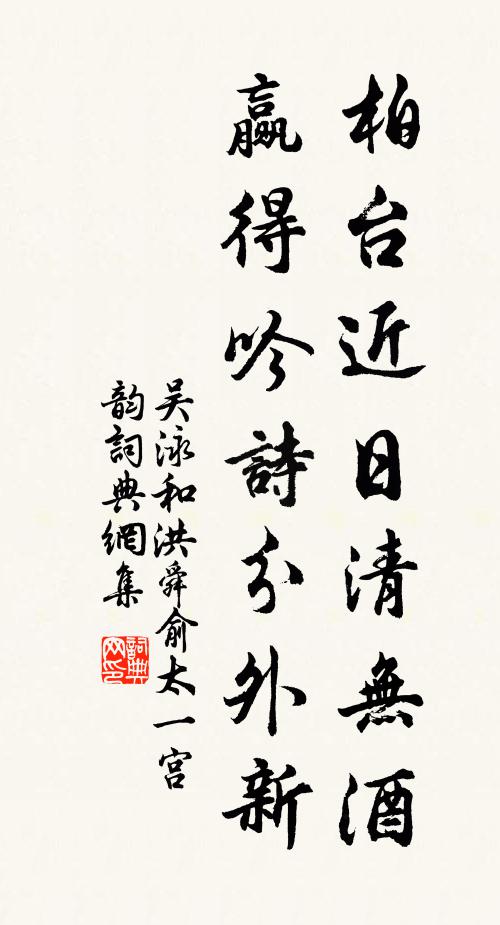 柏台近日清無酒
贏得吟詩分外新
吴泳和洪舜俞太一宫
韵詞典網集
詞典
网印